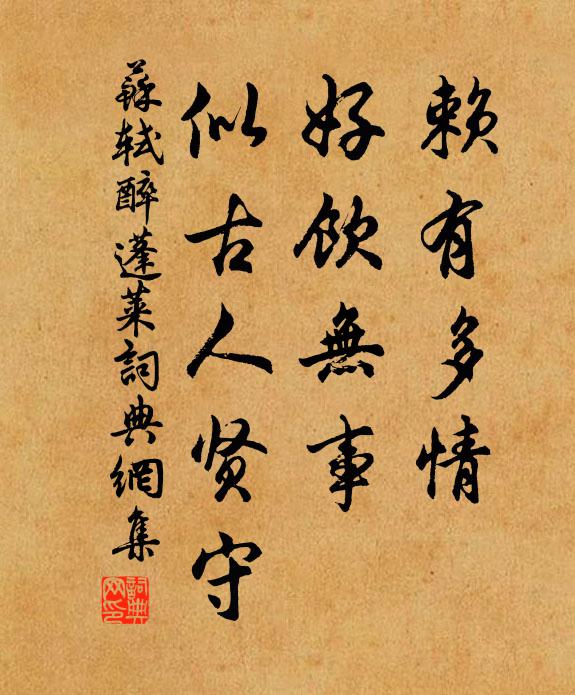 赖有多情
好饮無事
似古人贤守
蘇軾醉蓬萊詞典網集
詞典
网印